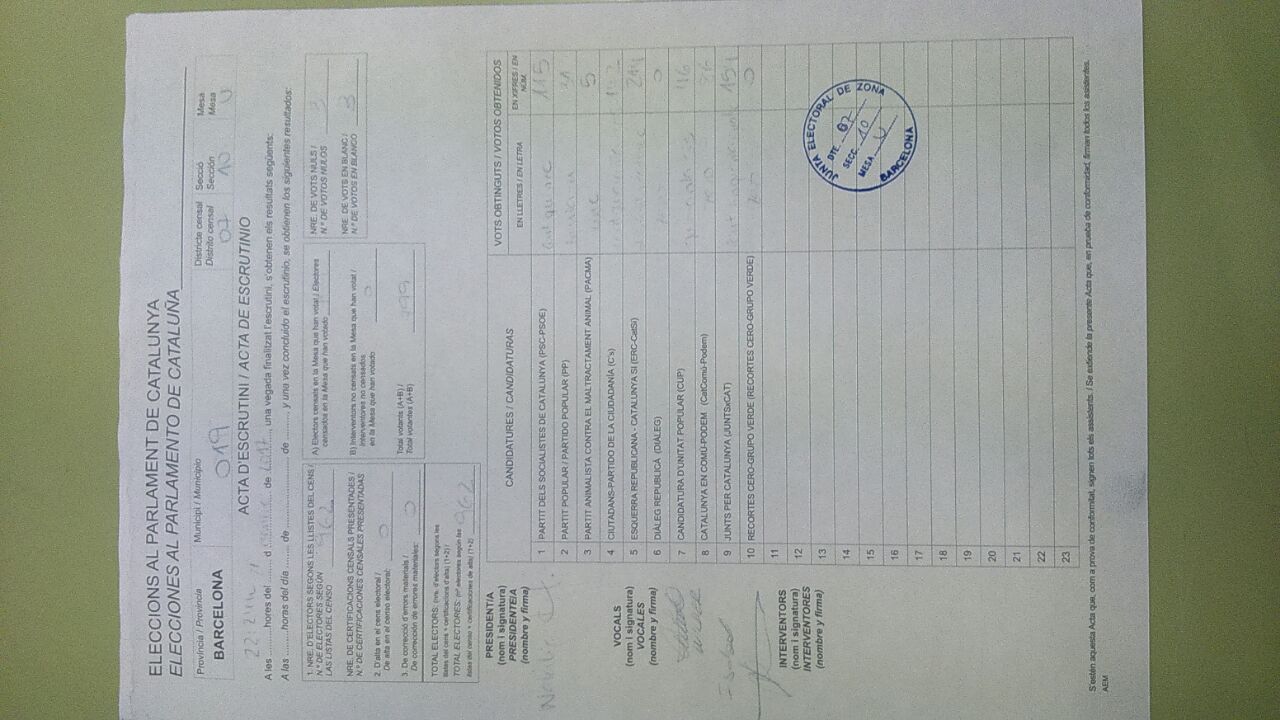 ELECCIONS AL PARLAMENT DE CATALUNYA
ELECCIONES AL PARLAMENTO DE CATALUÑA
Província / Provincia
BARCELONA
Municipi / Municipio
019
Districte censal
Distrito censal
07
Secció
Sección
10
Mesa
Mesa
U
ACTA D'ESCRUTINI / ACTA DE ESCRUTINIO
A les hores del d de 2017, una vegada finalitzat l'escrutini, s'obtenen els resultats següents:
A las horas del día de de y una vez concluido el escrutinio, se obtienen los siguientes resultados:
1. NRE. D'ELECTORS SEGONS LES LLISTES DEL CENS /
N.º DE ELECTORES SEGÚN
LAS LISTAS DEL CENSO 962
NRE. DE CERTIFICACIONS CENSALS PRESENTADES /
N.º DE CERTIFICACIONES CENSALES PRESENTADAS
2. D'alta en el cens electoral /
De alta en el censo electoral: 0
3. De correcció d'errors materials /
De corrección de errores materiales: 0
TOTAL ELECTORS: (nre. d'electors segons les
llistes del cens + certificacions d'alta) (1+2) /
TOTAL ELECTORES: (nº electores según las
listas del censo + certificaciones de alta) (1+2) 962
A) Electors censats en la Mesa que han votat / Electores
censados en la Mesa que han votado
B) Interventors no censats en la Mesa que han votat /
Interventores no censados
en la Mesa que han votado 0
Total votants (A+B) /
Total votantes (A+B) 799
NRE. DE VOTS NULS /
N.º DE VOTOS NULOS 3
NRE. DE VOTS EN BLANC /
N.º DE VOTOS EN BLANCO 3
CANDIDATURES / CANDIDATURAS
VOTS OBTINGUTS / VOTOS OBTENIDOS
EN LLETRES / EN LETRA
EN XIFRES / EN NÚM.
1 PARTIT DELS SOCIALISTES DE CATALUNYA (PSC-PSOE) 115
2 PARTIT POPULAR / PARTIDO POPULAR (PP)
3 PARTIT ANIMALISTA CONTRA EL MALTRACTAMENT ANIMAL (PACMA) 5
4 CIUTADANS-PARTIDO DE LA CIUDADANÍA (C's)
5 ESQUERRA REPUBLICANA - CATALUNYA SI (ERC-CatSí)
6 DIÀLEG REPUBLICÀ (DIÀLEG) 0
7 CANDIDATURA D'UNITAT POPULAR (CUP)
8 CATALUNYA EN COMÚ-PODEM (CatComú-Podem)
9 JUNTS PER CATALUNYA (JUNTSxCAT)
10 RECORTES CERO-GRUPO VERDE (RECORTES CERO-GRUPO VERDE) 0
11
12
13
14
15
16
17
18
19
20
21
22
23
PRESIDENT/A
(nom i signatura)
PRESIDENTE/A
(nombre y firma)
VOCALS
(nom i signatura)
VOCALES
(nombre y firma)
INTERVENTORS
(nom i signatura)
INTERVENTORES
(nombre y firma)
JUNTA ELECTORAL DE ZONA
DTE. 07
SECC. 10
MESA U
BARCELONA
S'estén aquesta Acta que, com a prova de conformitat, signen tots els assistents. / Se extiende la presente Acta que, en prueba de conformidad, firman todos los asistentes.
AEM